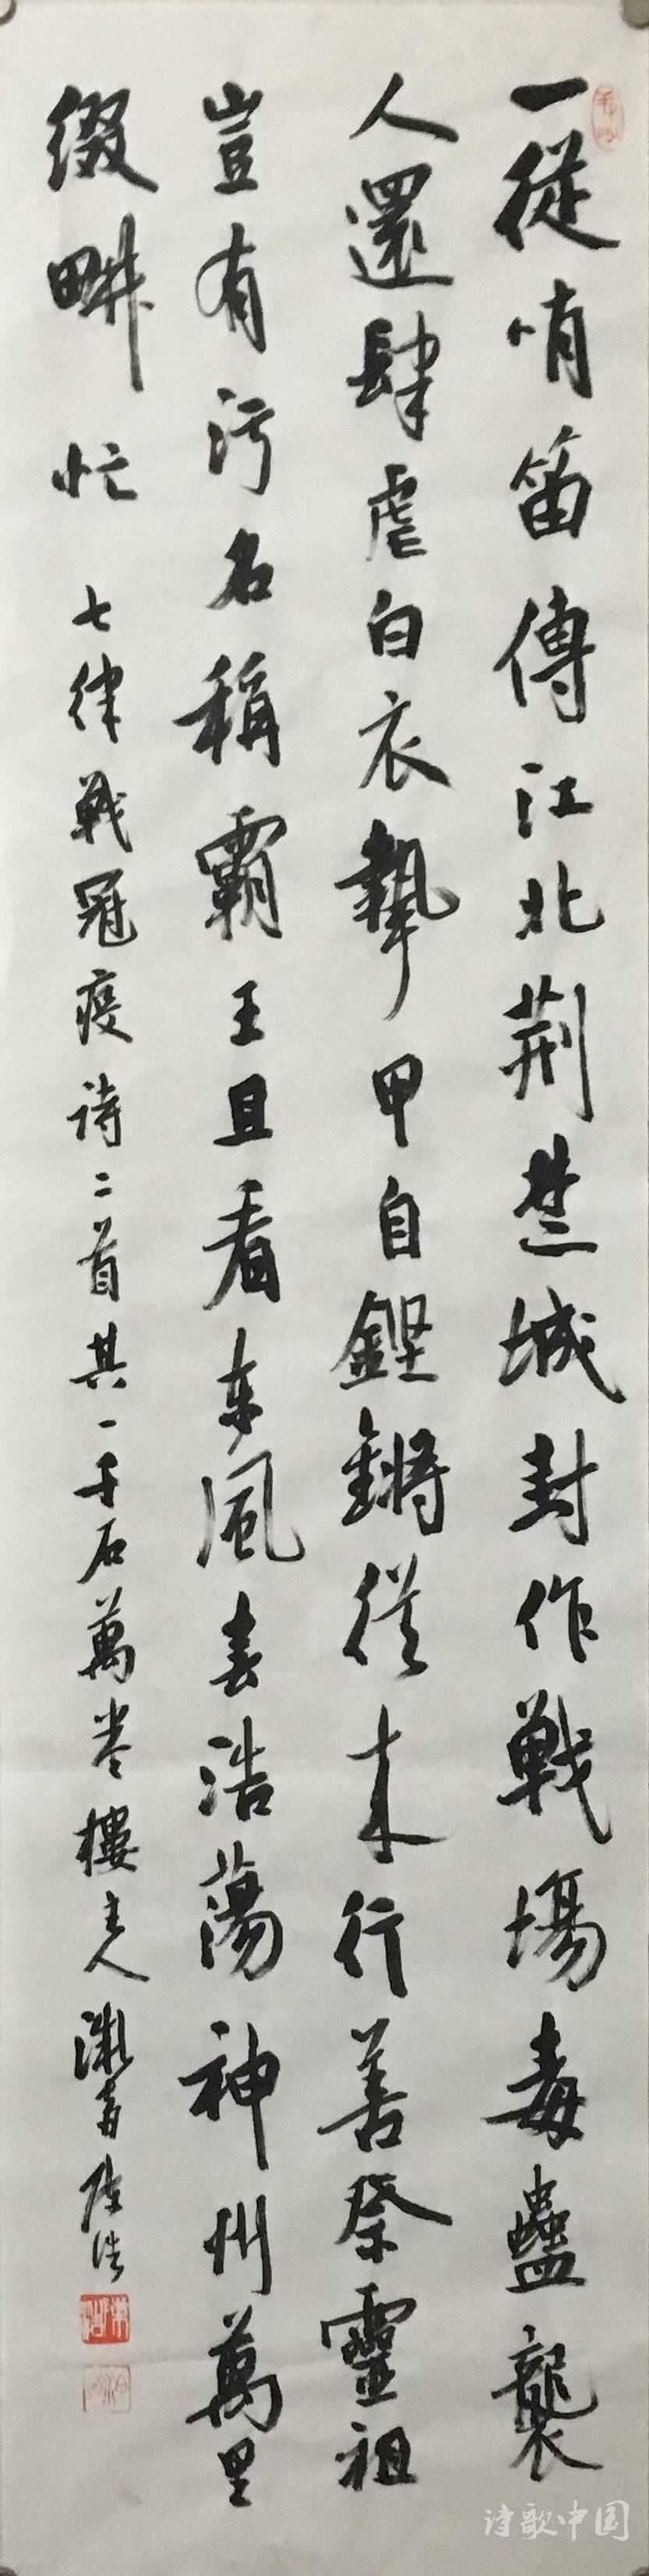 一從哨笛傳江北荆楚城封作戰場毒蠱襲
人還肆虐白衣摯甲自鏗鏘從来行善祭靈祖
豈有污名稱霸王且看东風春浩蕩神州萬里
缀畊忙
七律戰冠疫诗二首其一千石萬卷樓主人
诗歌中国